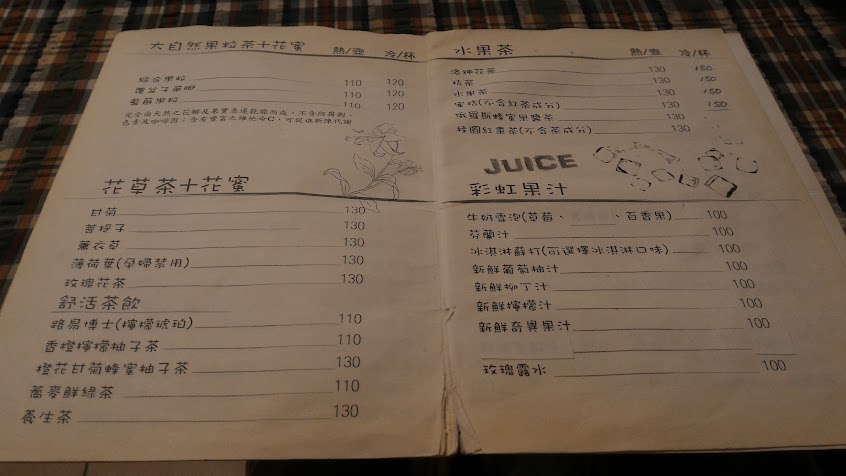 大自然果粒茶+花蜜 熱/壺 冷/杯
綜合果粒 110 120
覆盆子果粒 110 120
藍莓果粒 110 120
完全由天然之花瓣及果實急速乾燥而成，不含防腐劑，
色素及咖啡因；含有豐富之維他命C，可促進新陳代謝
花草茶+花蜜
甘菊 130
菩提子 130
薰衣草 130
薄荷葉(孕婦禁用) 130
玫瑰花茶 130
舒活茶飲
路易博士(檸檬琥珀) 110
香橙檸檬柚子茶 110
橙花甘菊蜂蜜柚子茶 130
蕎麥鮮綠茶 110
養生茶 130
水果茶 熱/壺 冷/杯
洛神花茶 130 150
桔茶 130 150
水果茶 130 150
蜜桔(不含紅茶成分) 130 150
俄羅斯蜂蜜果醬茶 130
桂圓紅棗茶(不含茶成分) 130
JUICE
彩虹果汁
牛奶雪泡(草莓、 、百香果) 100
芬蘭汁 100
冰淇淋蘇打(可選擇冰淇淋口味) 100
新鮮葡萄柚汁 100
新鮮柳丁汁 100
新鮮檸檬汁 100
新鮮奇異果汁 100
玫瑰露水 100